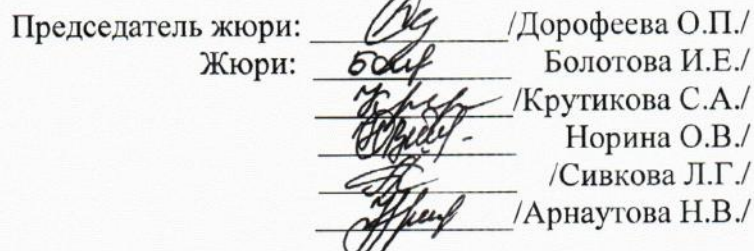 Председатель жюри: /Дорофеева О.П./
Жюри: Болотова И.Е./
/Крутикова С.А./
Норина О.В./
/Сивкова Л.Г./
/Арнаутова Н.В./